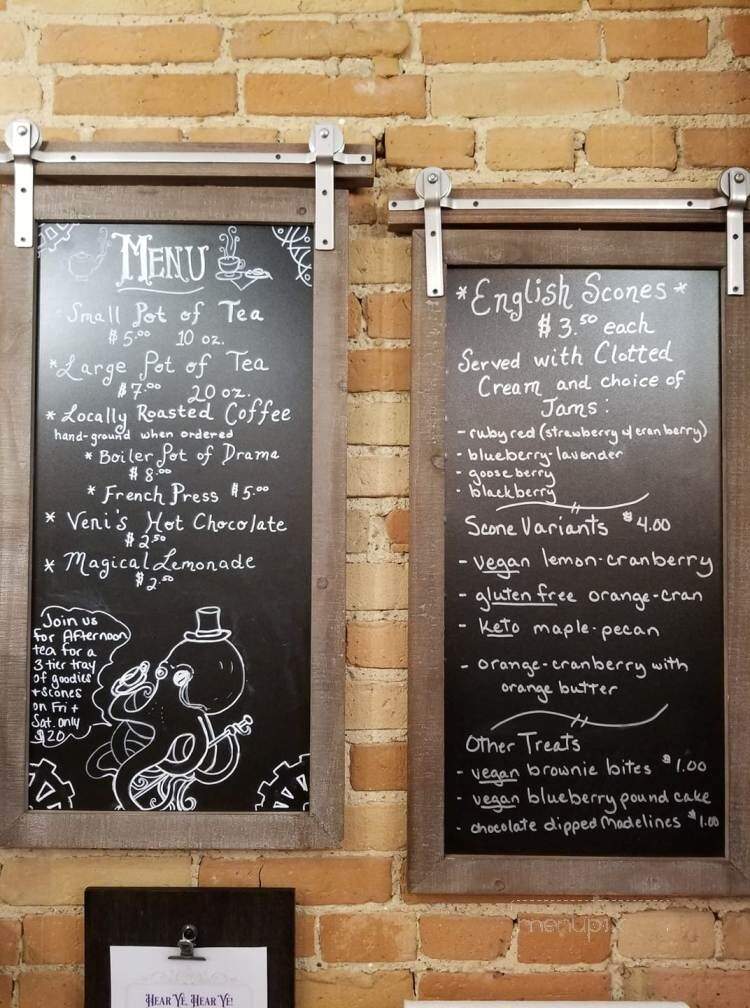 MENU
Small Pot of Tea
$5.00 10 oz.
*Large Pot of Tea
$7.00 20 oz.
* Locally Roasted Coffee
hand-ground when ordered
* Boiler Pot of Drama
$8.00
* French Press $5.00
* Veni's Hot Chocolate
$2.50
* Magical Lemonade
$2.50
Join us
for Afternoon
tea for a
3 tier tray
of goodies
+ Scones
on Fri +
Sat. only
$20
HEAR YE, HEAR YE!
*English Scones*
$3.50 each
Served with Clotted
Cream and choice of
Jams:
- ruby red (strawberry w/ cranberry)
- blueberry-lavender
- gooseberry
- blackberry
Scone Variants $4.00
- vegan lemon-cranberry
- gluten free orange-cran
- Keto maple-pecan
- orange-cranberry with
orange butter
Other Treats
- vegan brownie bites $1.00
- vegan blueberry pound cake
- chocolate dipped Madelines $1.00
menupix